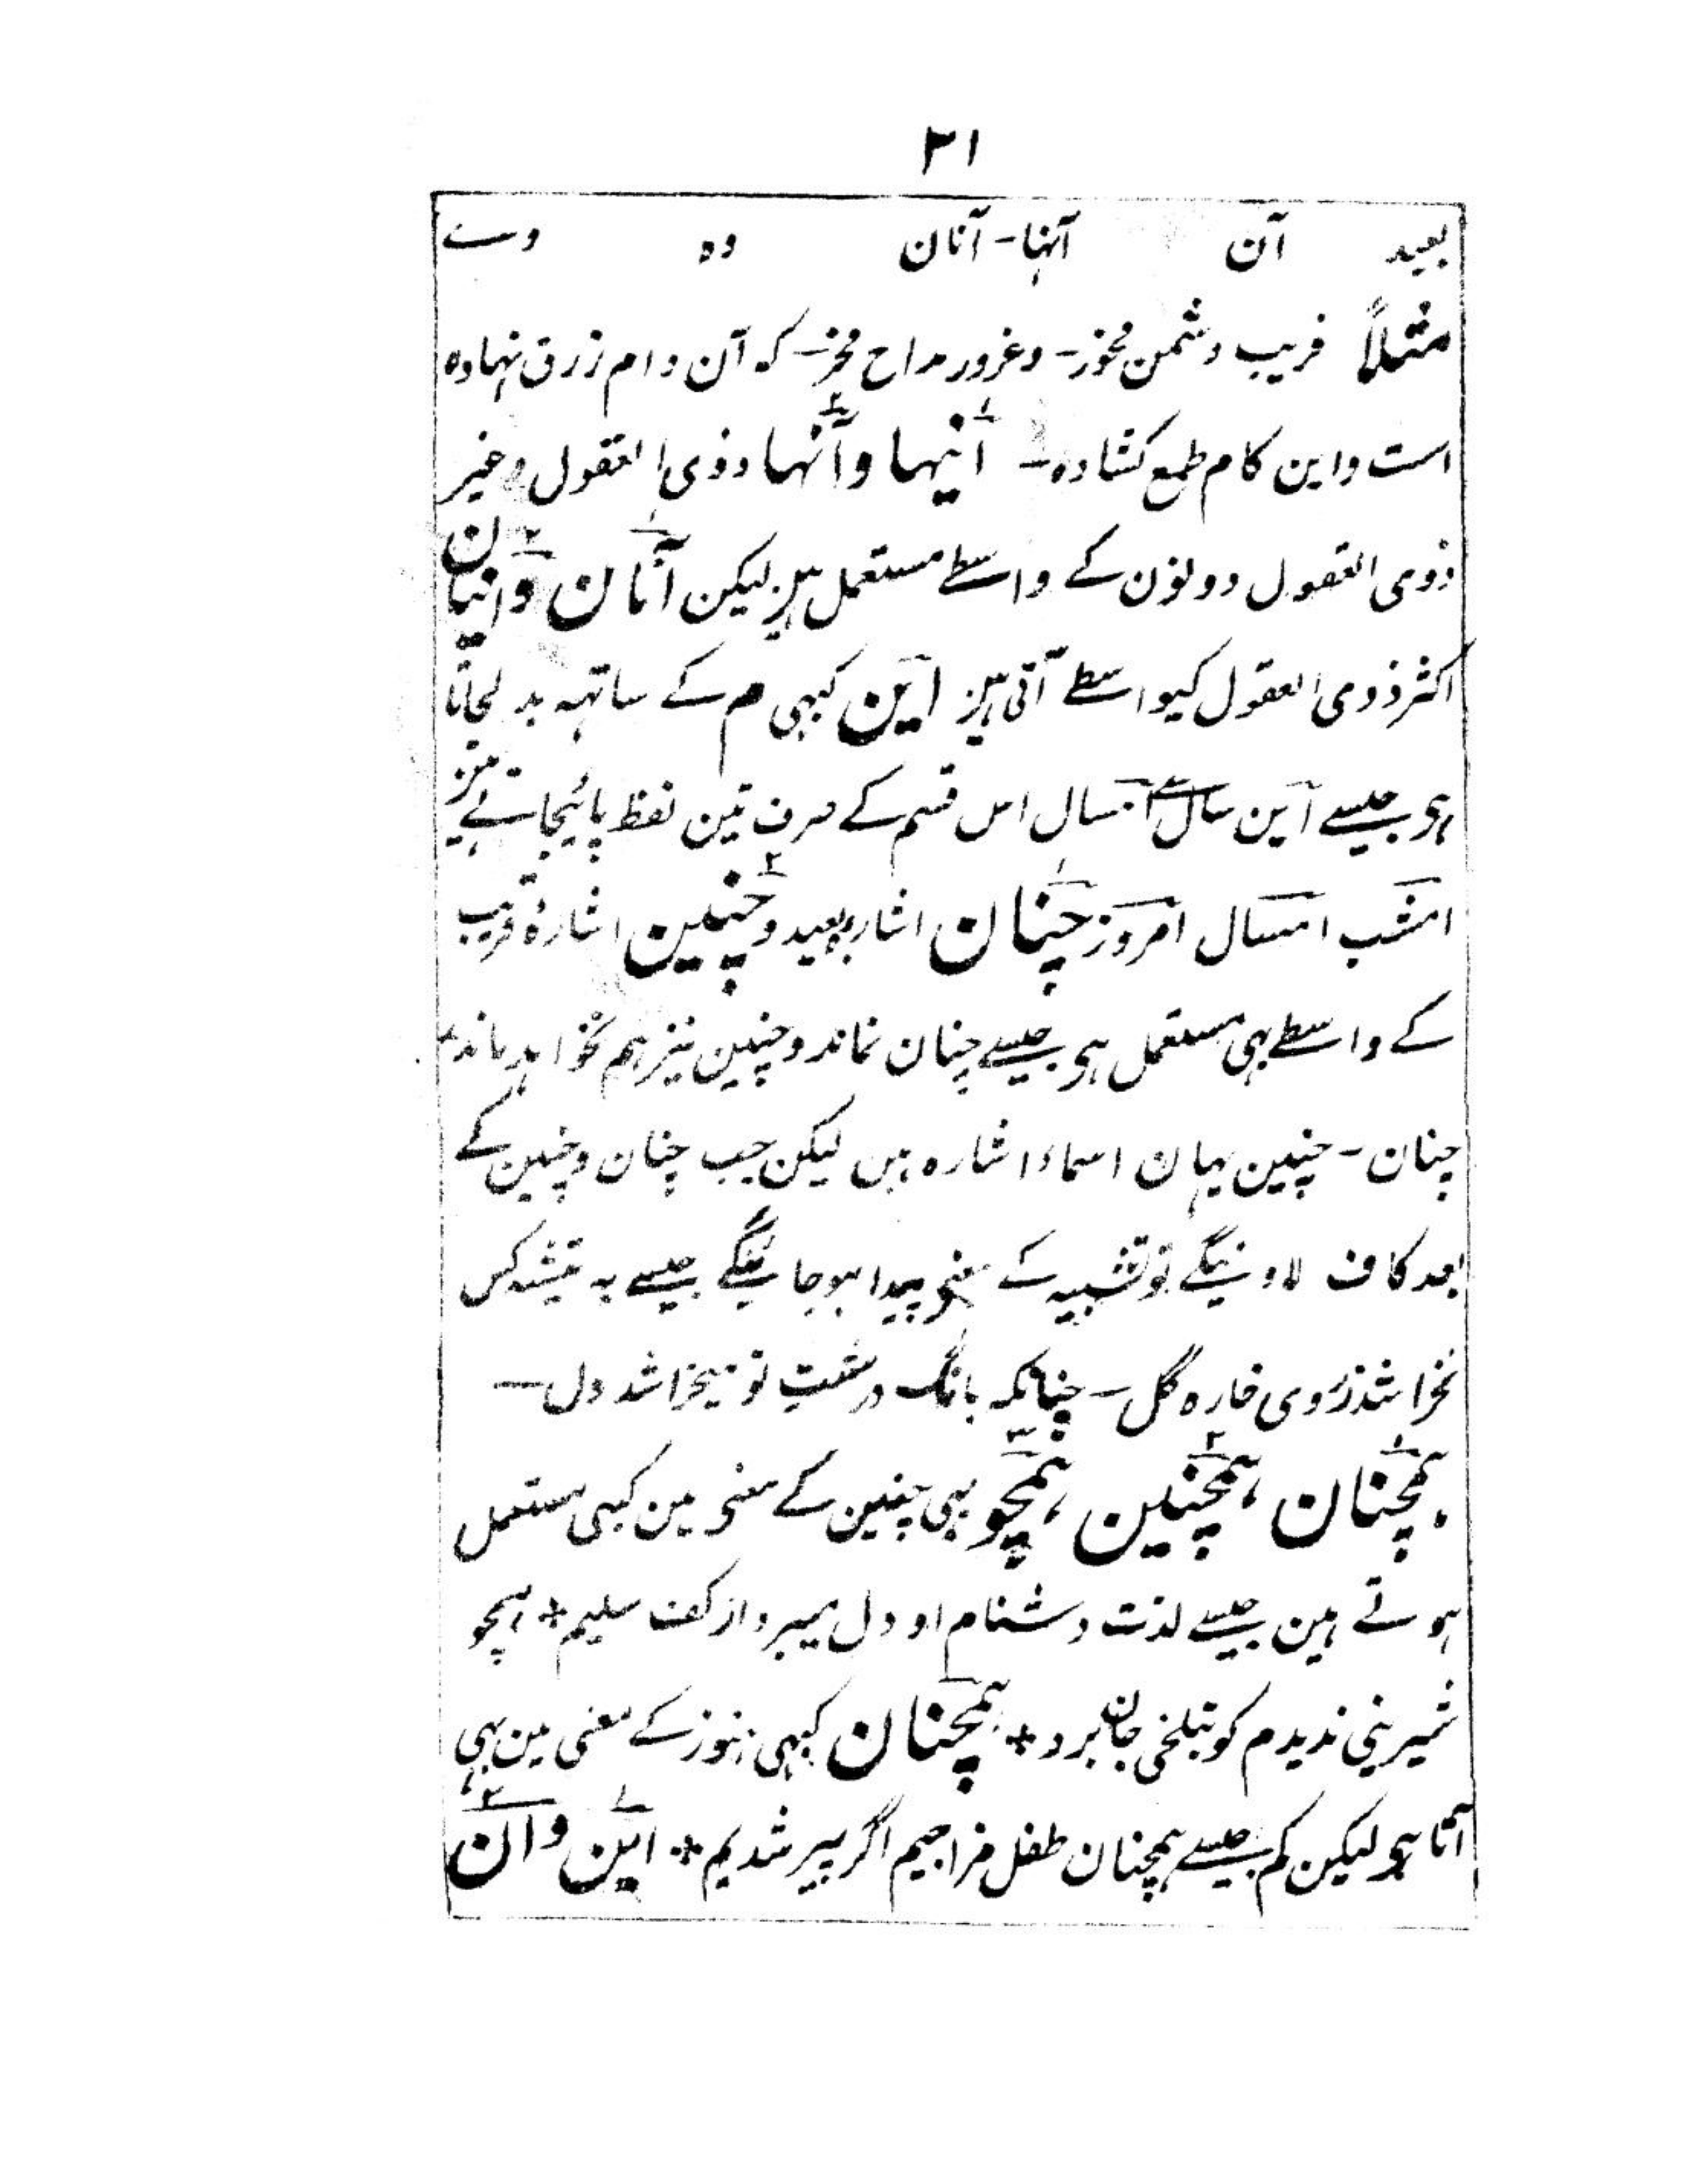 ۲۱
بعید آن آنہا - آنان وہ وے
مثلاً فریب دشمن مخور - وغرور مداح مخر - کہ آن دام زرق نہادہ
است واین کام طمع کشادہ - اینہا وآنہا ذوی العقول وغیر
ذوی العقول دونون کے واسطے مستعمل ہیں لیکن آنان واینان
اکثر ذوی العقول کیواسطے آتی ہیں این کبہی م کے ساتہہ بدلجاتا
ہی جیسے این سال امسال اس قسم کے صرف تین لفظ پائیجاتے ہیں
امشب امسال امروز چنان اشارہ بعید و چنین اشارۂ قریب
کے واسطے بہی مستعمل ہی جیسے چنان نماند و چنین نیز ہم نخواہد ماند
چنان - چنین یہان اسماء اشارہ ہیں لیکن جب چنان و چنین کے
بعد کاف لاوینگے تو تشبیہ کے معنی پیدا ہوجائینگے جیسے بہ تیشہ کس
نخراشد ز روی خارہ گل - چنانکہ بانگ درشت تو میخراشد دل -
ہمچنان ، ہمچنین ، ہمچو بہی چنین کے معنی مین کبہی مستعمل
ہوتے ہین جیسے لذت دشنام او دل میبرد از کف سلیم * ہمچو
شیرینی ندیدم کو بتلخی جان برد * ہمچنان کبہی ہنوز کے معنی مین بہی
آتا ہی لیکن کم جیسے ہمچنان طفل مزاجیم اگر پیر شدیم * این وآن